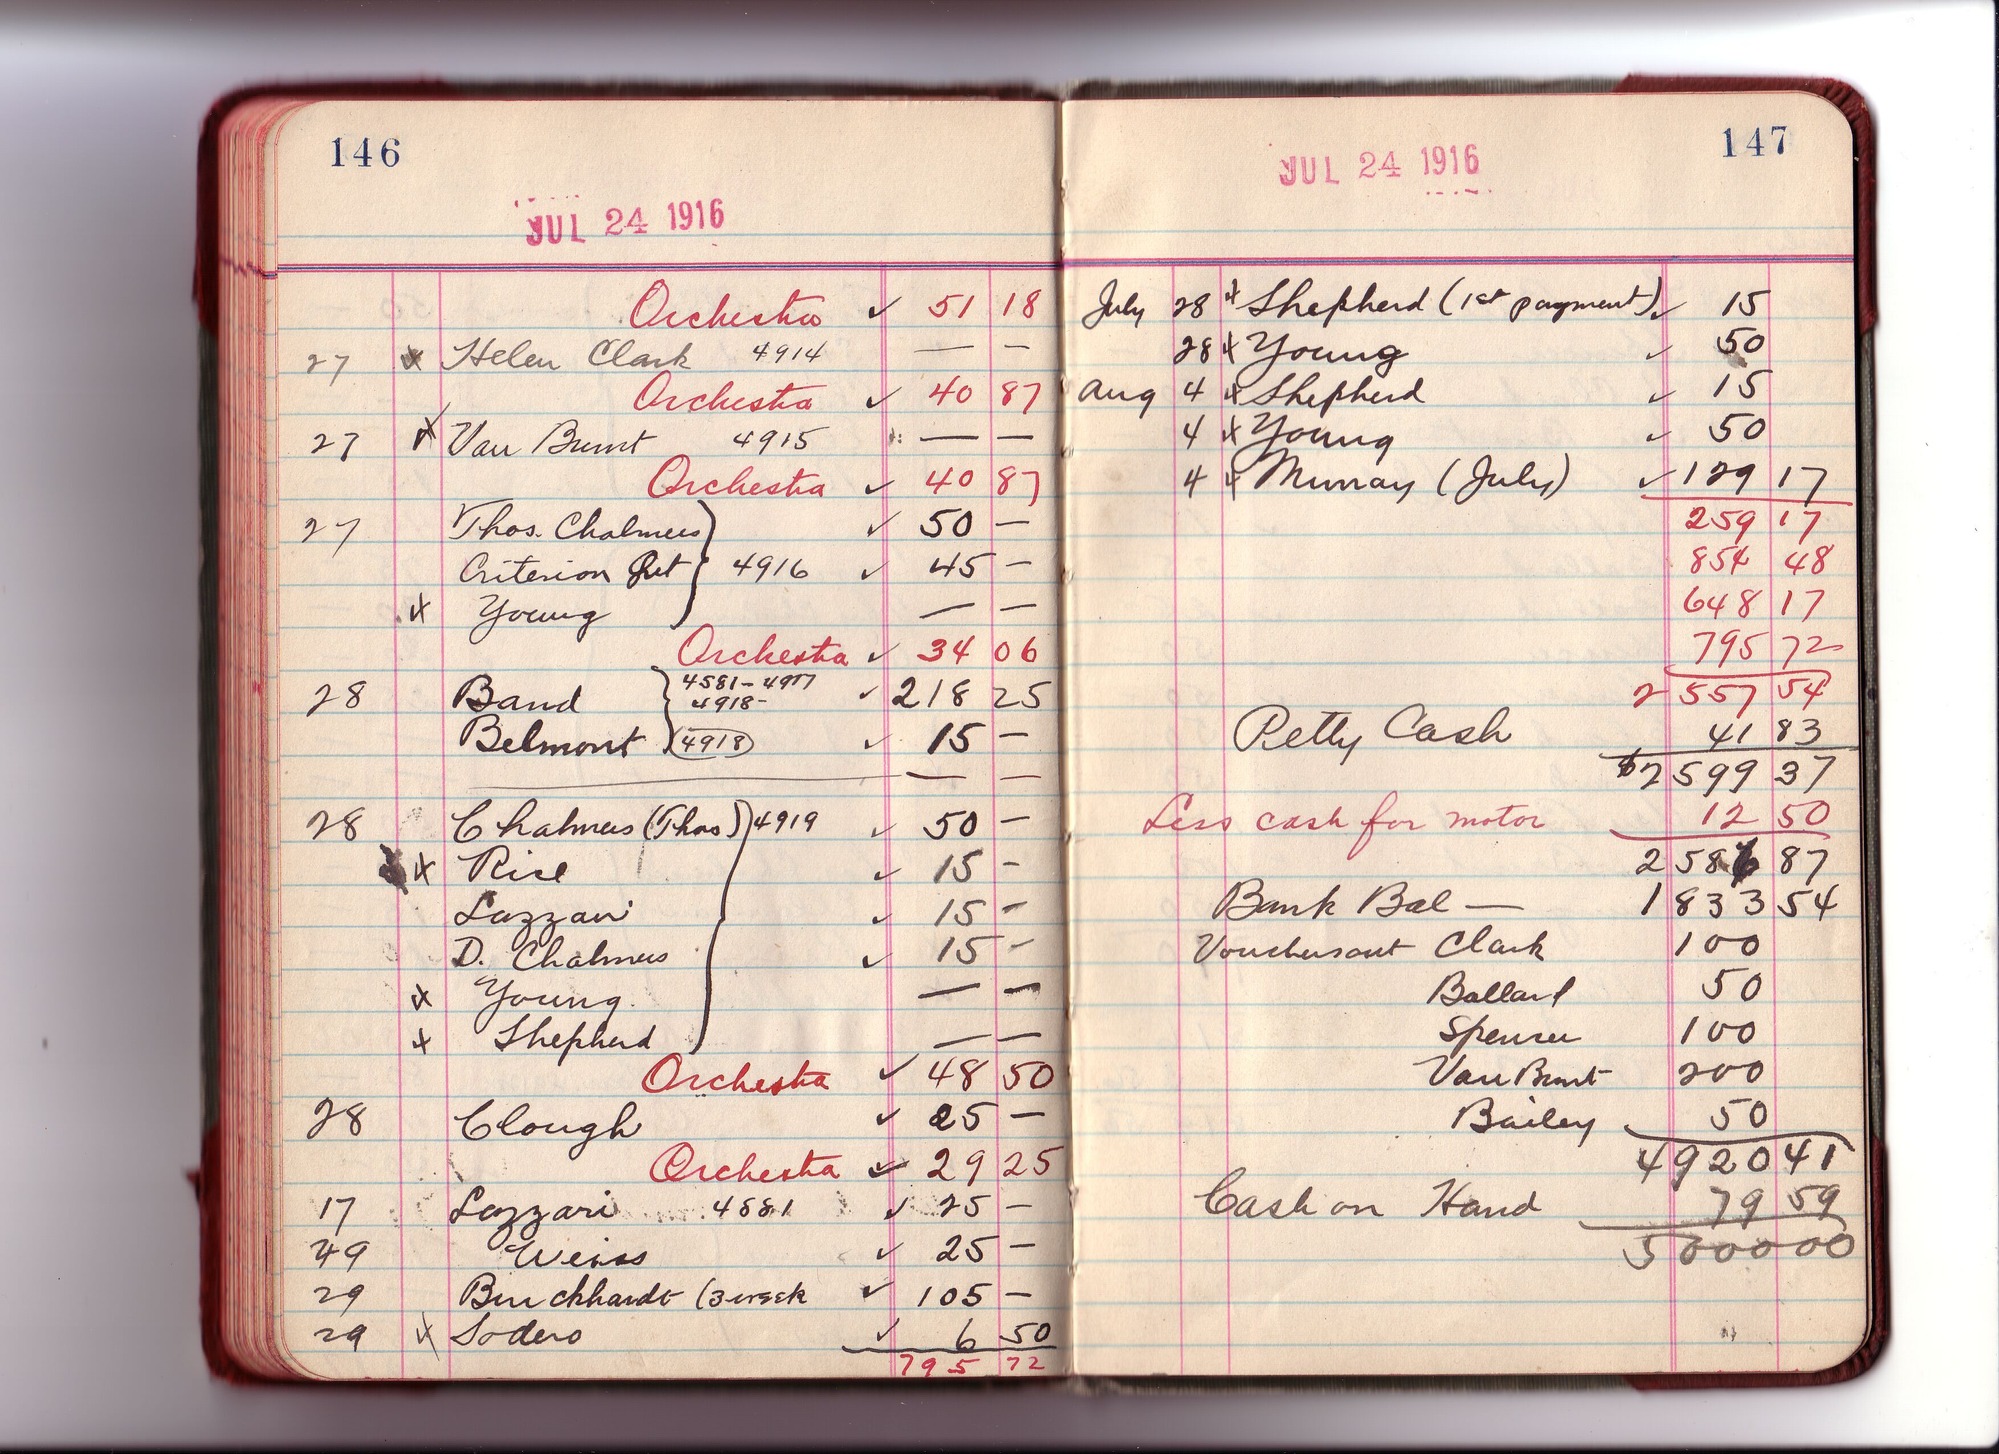 146
JUL 24 1916
Orchestra ✓ 51 18
27 x Helen Clark 4914 — —
Orchestra ✓ 40 87
27 x Van Brunt 4915 — —
Orchestra ✓ 40 87
27 Thos. Chalmers ✓ 50 —
Criterion Qut 4916 ✓ 45 —
x Young — —
Orchestra ✓ 34 06
28 Band 4581-4917 ✓ 218 25
4918-
Belmont (4918) ✓ 15 —
— —
28 Chalmers (Thos) 4919 ✓ 50 —
x Rice ✓ 15 —
Lazzari ✓ 15 —
D. Chalmers ✓ 15 —
x Young — —
x Shepherd — —
Orchestra ✓ 48 50
28 Clough ✓ 25 —
Orchestra ✓ 29 25
17 Lazzari 4881 ✓ 25 —
29 Weiss ✓ 25 —
29 Burckhardt (3 week ✓ 105 —
29 x Sodero ✓ 6 50
795 72
147
JUL 24 1916
July 28 x Shepherd (1st payment) ✓ 15
28 x Young ✓ 50
Aug 4 x Shepherd ✓ 15
4 x Young ✓ 50
4 x Murray (July) ✓ 129 17
259 17
854 48
648 17
795 72
2557 54
Petty Cash 41 83
$2599 37
Less cash for motor 12 50
2586 87
Bank Bal — 1833 54
Vouchers out Clark 100
Ballard 50
Spencer 100
Van Brunt 200
Bailey 50
4920 41
Cash on Hand 79 59
5000 00